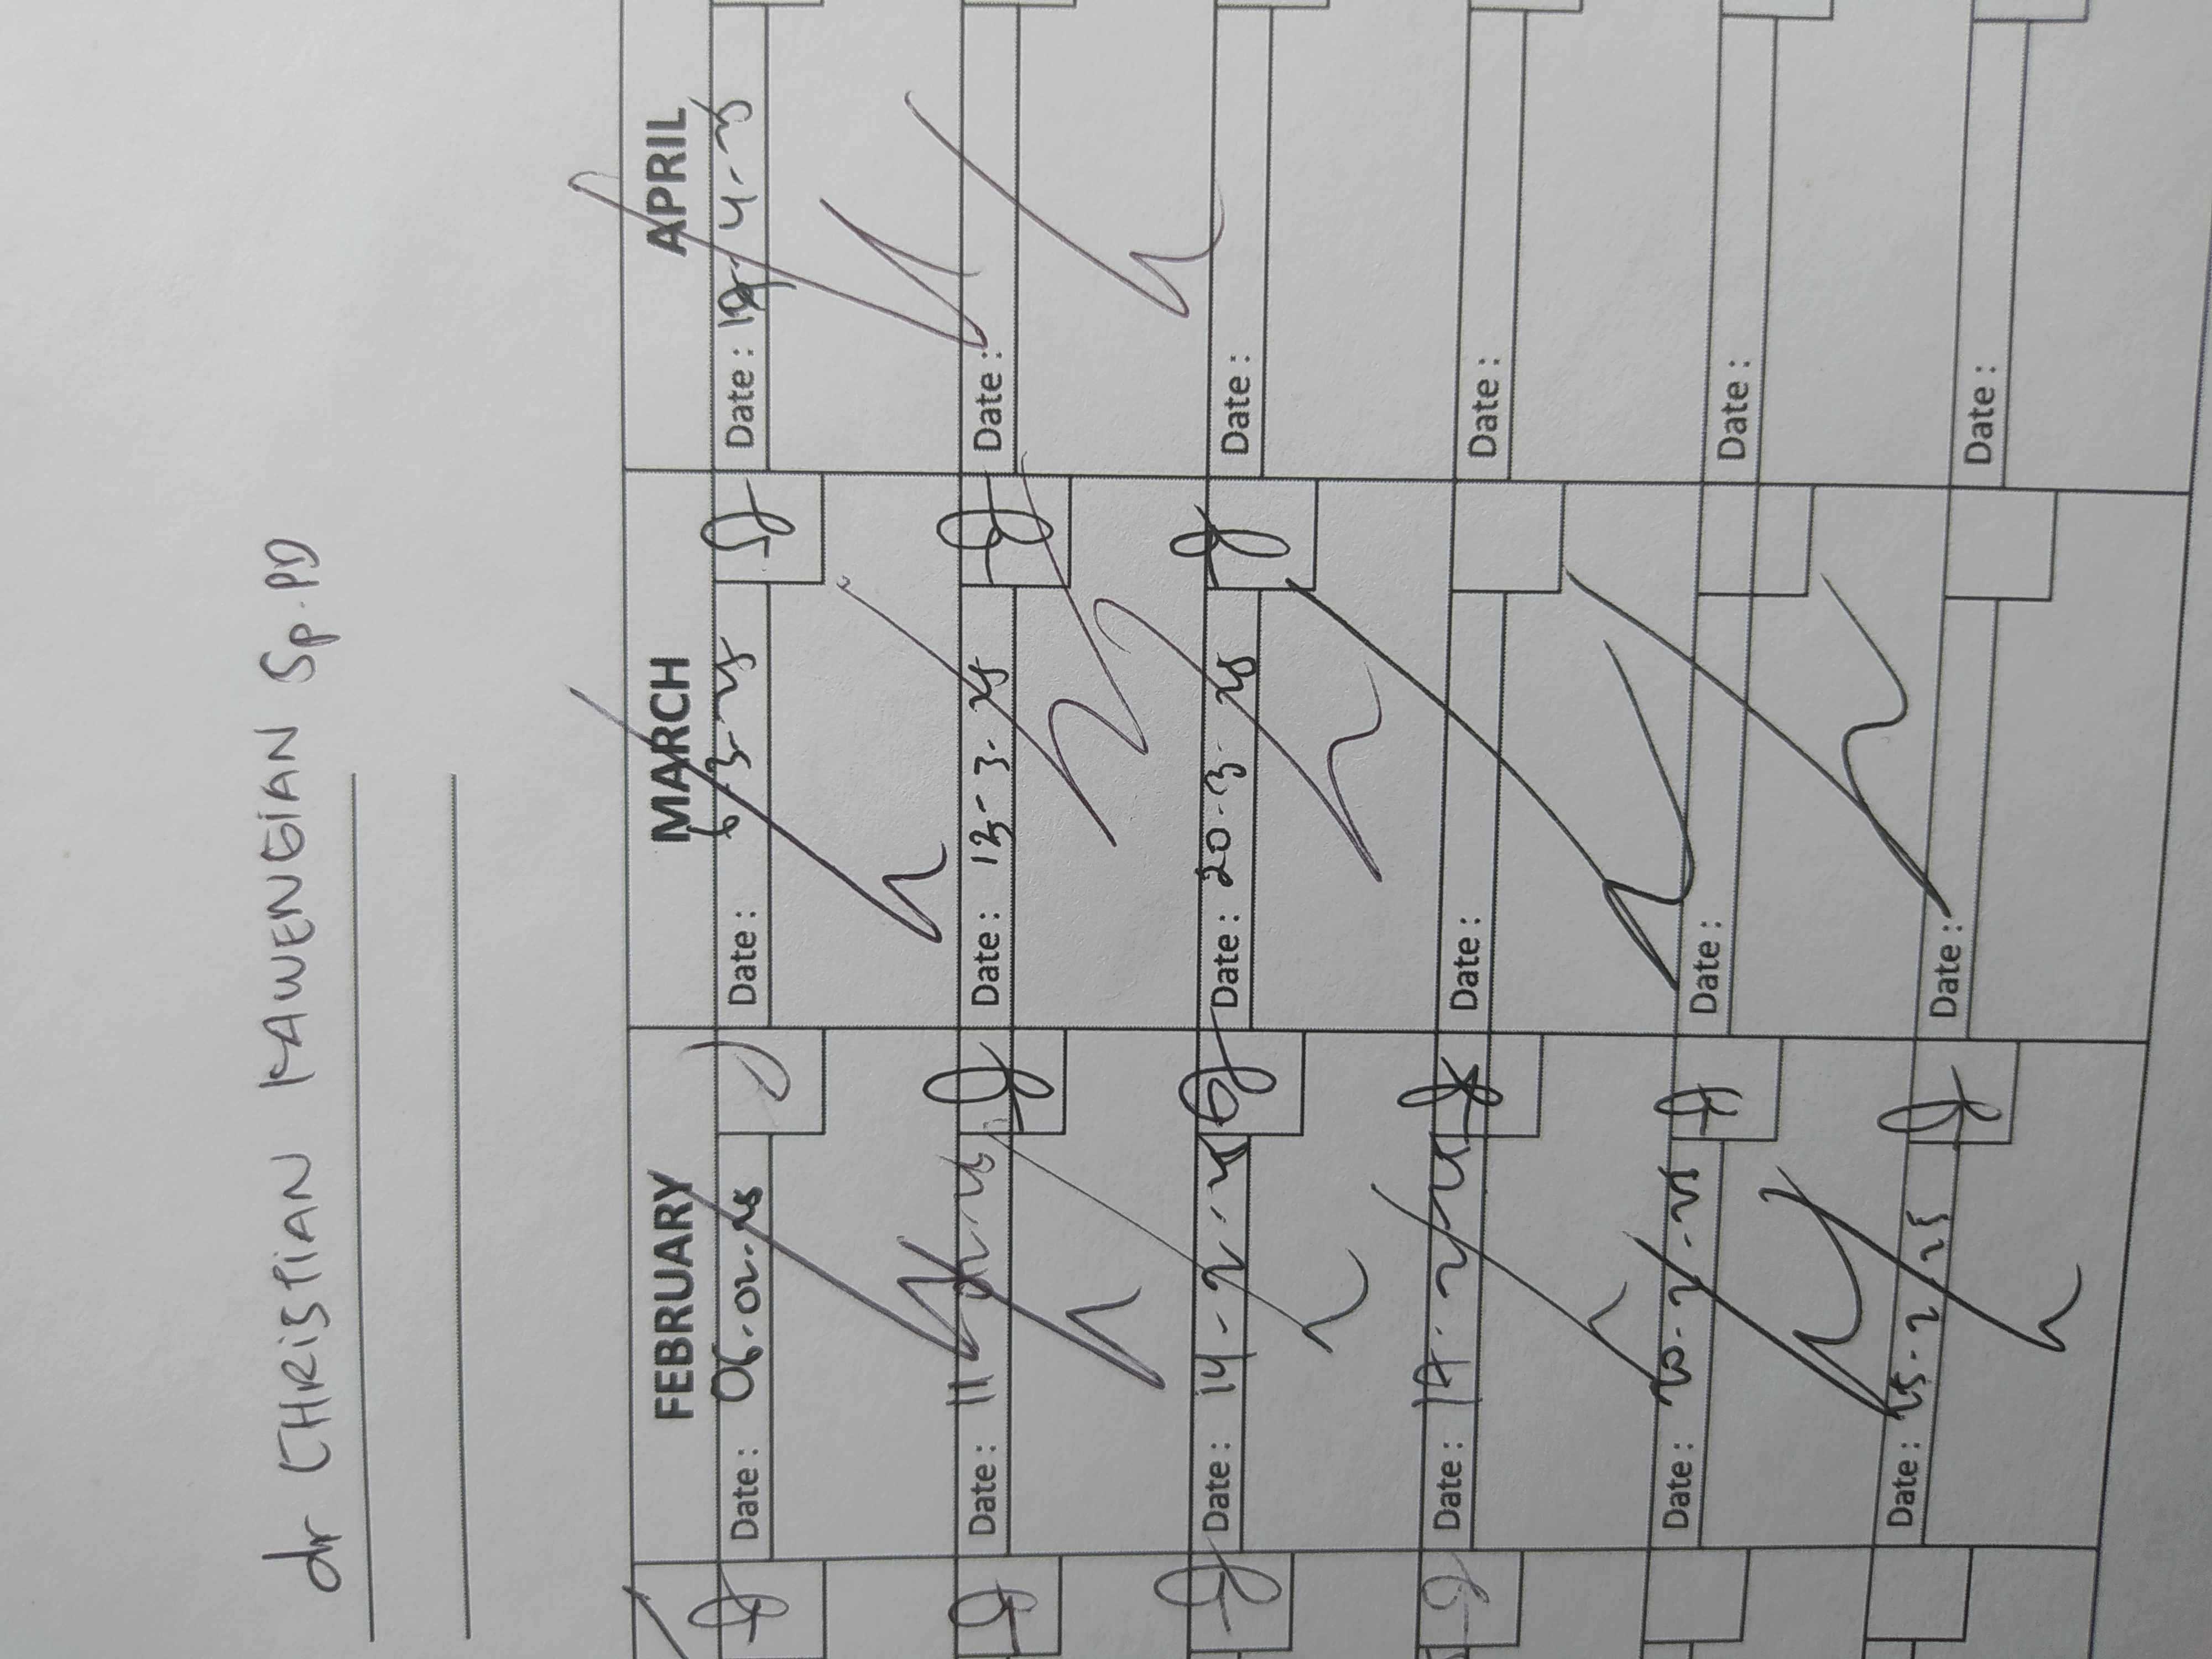 dr CHRISTIAN KAWENGIAN Sp.PD
FEBRUARY MARCH APRIL
Date: 06.02.25 Date: 6-3-25 Date: 4-25
Date: 11 Date: 13-3-25 Date:
Date: 14-2-25 Date: 20-3-25 Date:
Date: 17-2-25 Date: Date:
Date: 20-2-25 Date: Date:
Date: 25-2-25 Date: Date: